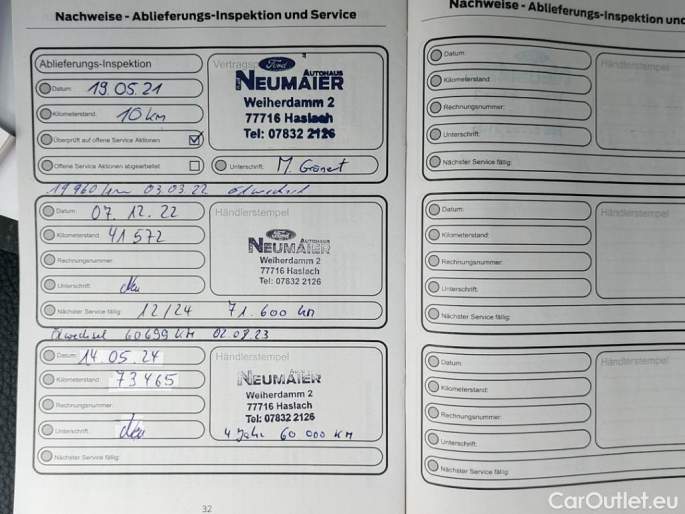 Nachweise - Ablieferungs-Inspektion und Service
Ablieferungs-Inspektion
Vertragsp
Ford
AUTOHAUS
NEUMAIER
Weiherdamm 2
77716 Haslach
Tel: 07832 2126
Datum: 19.05.21
Kilometerstand: 10 km
Überprüft auf offene Service Aktionen
Offene Service Aktionen abgearbeitet
Unterschrift:
19960 km 03.03.22 Ölwechsel
Datum: 07.12.22
Händlerstempel
Kilometerstand: 41572
Rechnungsnummer:
Unterschrift:
Ford
AUTOHAUS
NEUMAIER
Weiherdamm 2
77716 Haslach
Tel: 07832 2126
Nächster Service fällig: 12/24 71.600 km
Ölwechsel 60699 KM 02.08.23
Datum: 14.05.24
Händlerstempel
Kilometerstand: 73465
Rechnungsnummer:
Unterschrift:
NEUMAIER
Weiherdamm 2
77716 Haslach
Tel: 07832 2126
4 Jahr 60 000 KM
Nächster Service fällig:
32
Nachweise - Ablieferungs-Inspektion und
Datum:
Händlerstempel
Kilometerstand:
Rechnungsnummer:
Unterschrift:
Nächster Service fällig:
Datum:
Händlerstempel
Kilometerstand:
Rechnungsnummer:
Unterschrift:
Nächster Service fällig:
Datum:
Händlerstempel
Kilometerstand:
Rechnungsnummer:
Unterschrift:
Nächster Service fällig:
CarOutlet.eu